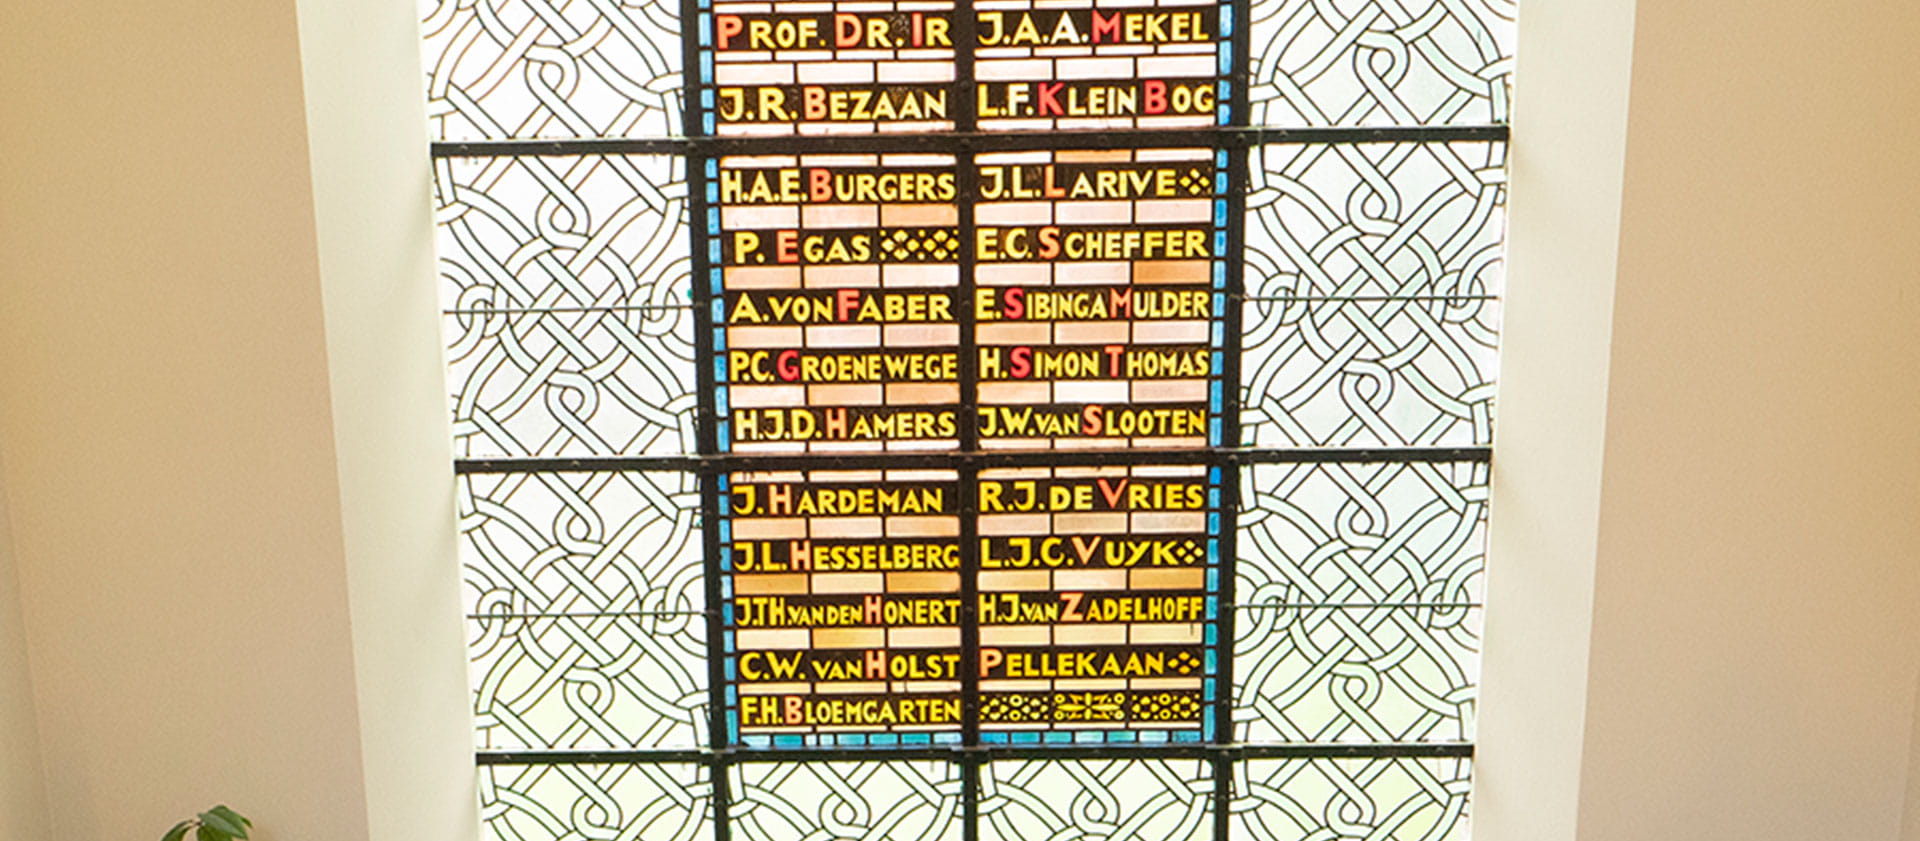 PROF. DR. IR J.A.A. MEKEL
J.R. BEZAAN
H.A.E. BURGERS
P. EGAS
A. VON FABER
P.C. GROENEWEGE
H.J.D. HAMERS
J. HARDEMAN
J.L. HESSELBERG
J.TH. VAN DEN HONERT
C.W. VAN HOLST
F.H. BLOEMGARTEN
L.F. KLEIN BOG
J.L. LARIVE
E.C. SCHEFFER
E. SIBINGA MULDER
H. SIMON THOMAS
J.W. VAN SLOOTEN
R.J. DE VRIES
L.J.C. VUYK
H.J. VAN ZADELHOFF
PELLEKAAN